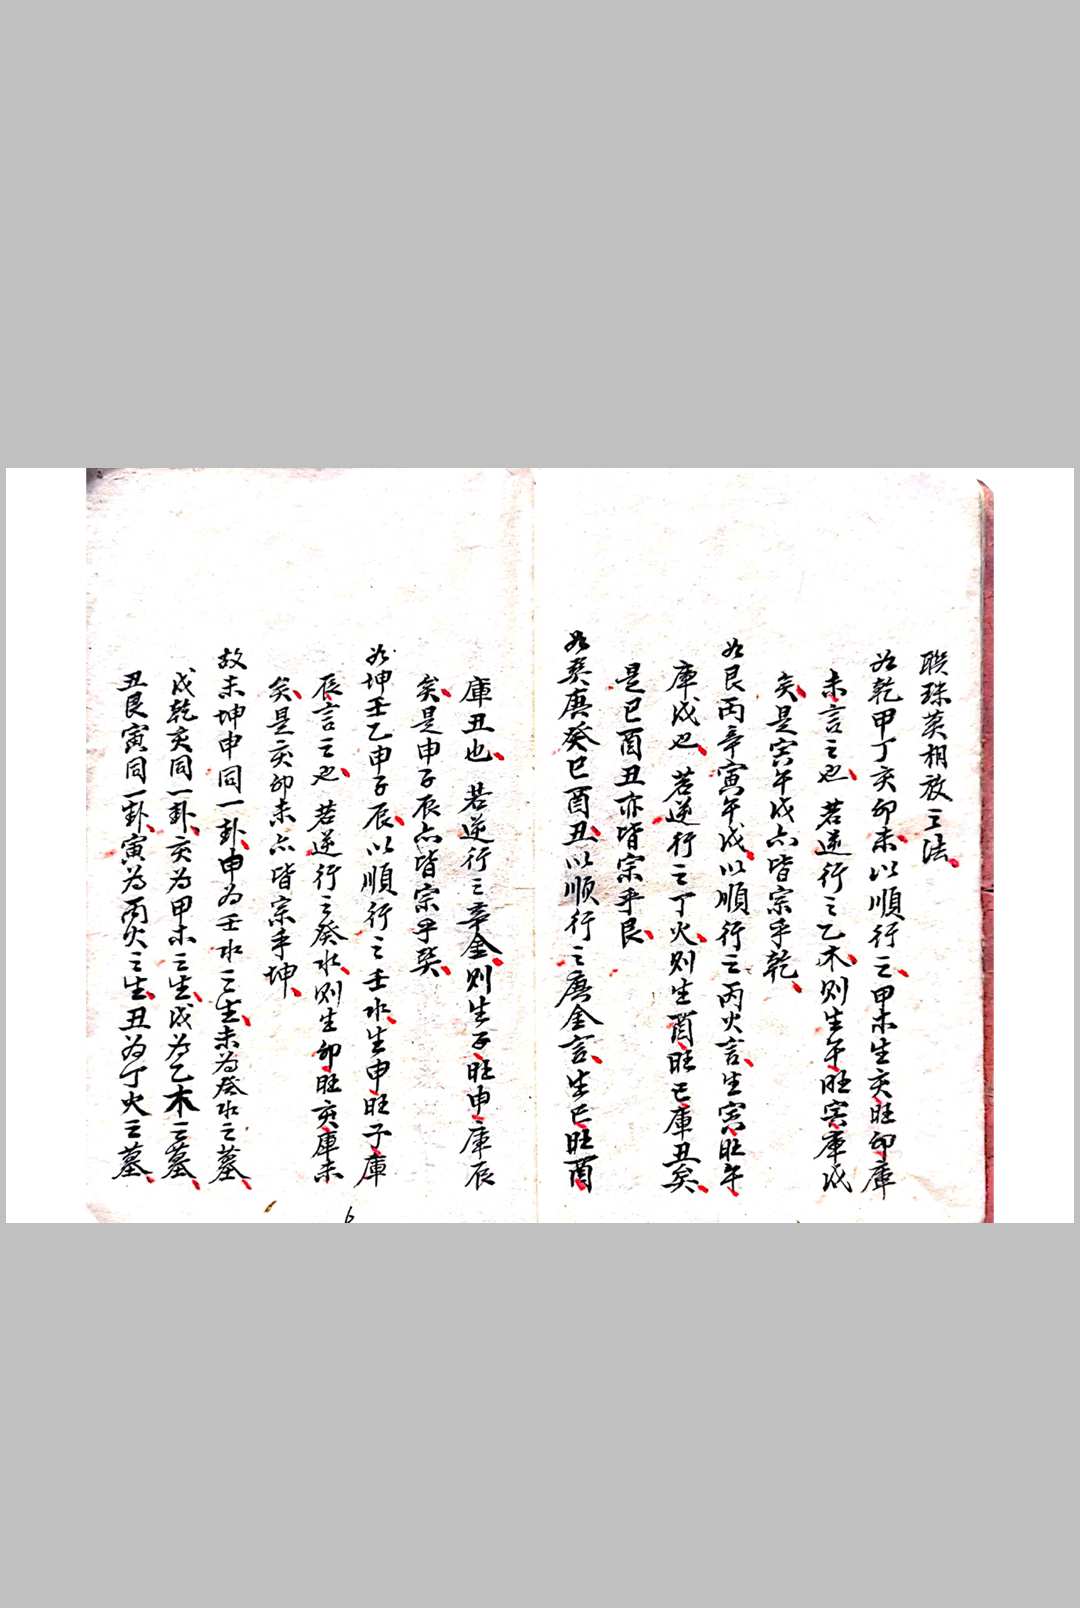 聯珠英相放之法
如乾甲丁亥卯未以順行之甲木生亥旺卯庫
未言之也若逆行之乙木則生午旺寅庫戌
矣是寅午戌亦皆宗乎乾
如艮丙辛寅午戌以順行之丙火言生寅旺午
庫戌也若逆行之丁火則生酉旺巳庫丑矣
是巳酉丑亦皆宗乎艮
如巽庚癸巳酉丑以顺行之庚金言生巳旺酉
庫丑也若逆行之辛金則生子旺申庫辰
矣是申子辰亦皆宗乎巽
如坤壬乙申子辰以順行之壬水生申旺子庫
辰言之也若逆行之癸水則生卯旺亥庫未
矣是亥卯未亦皆宗乎坤
故未坤申同一卦申為壬水之生未為癸水之墓
戌乾亥同一卦亥為甲木之生戌為乙木之墓
丑艮寅同一卦寅為丙火之生丑為丁火之墓
6